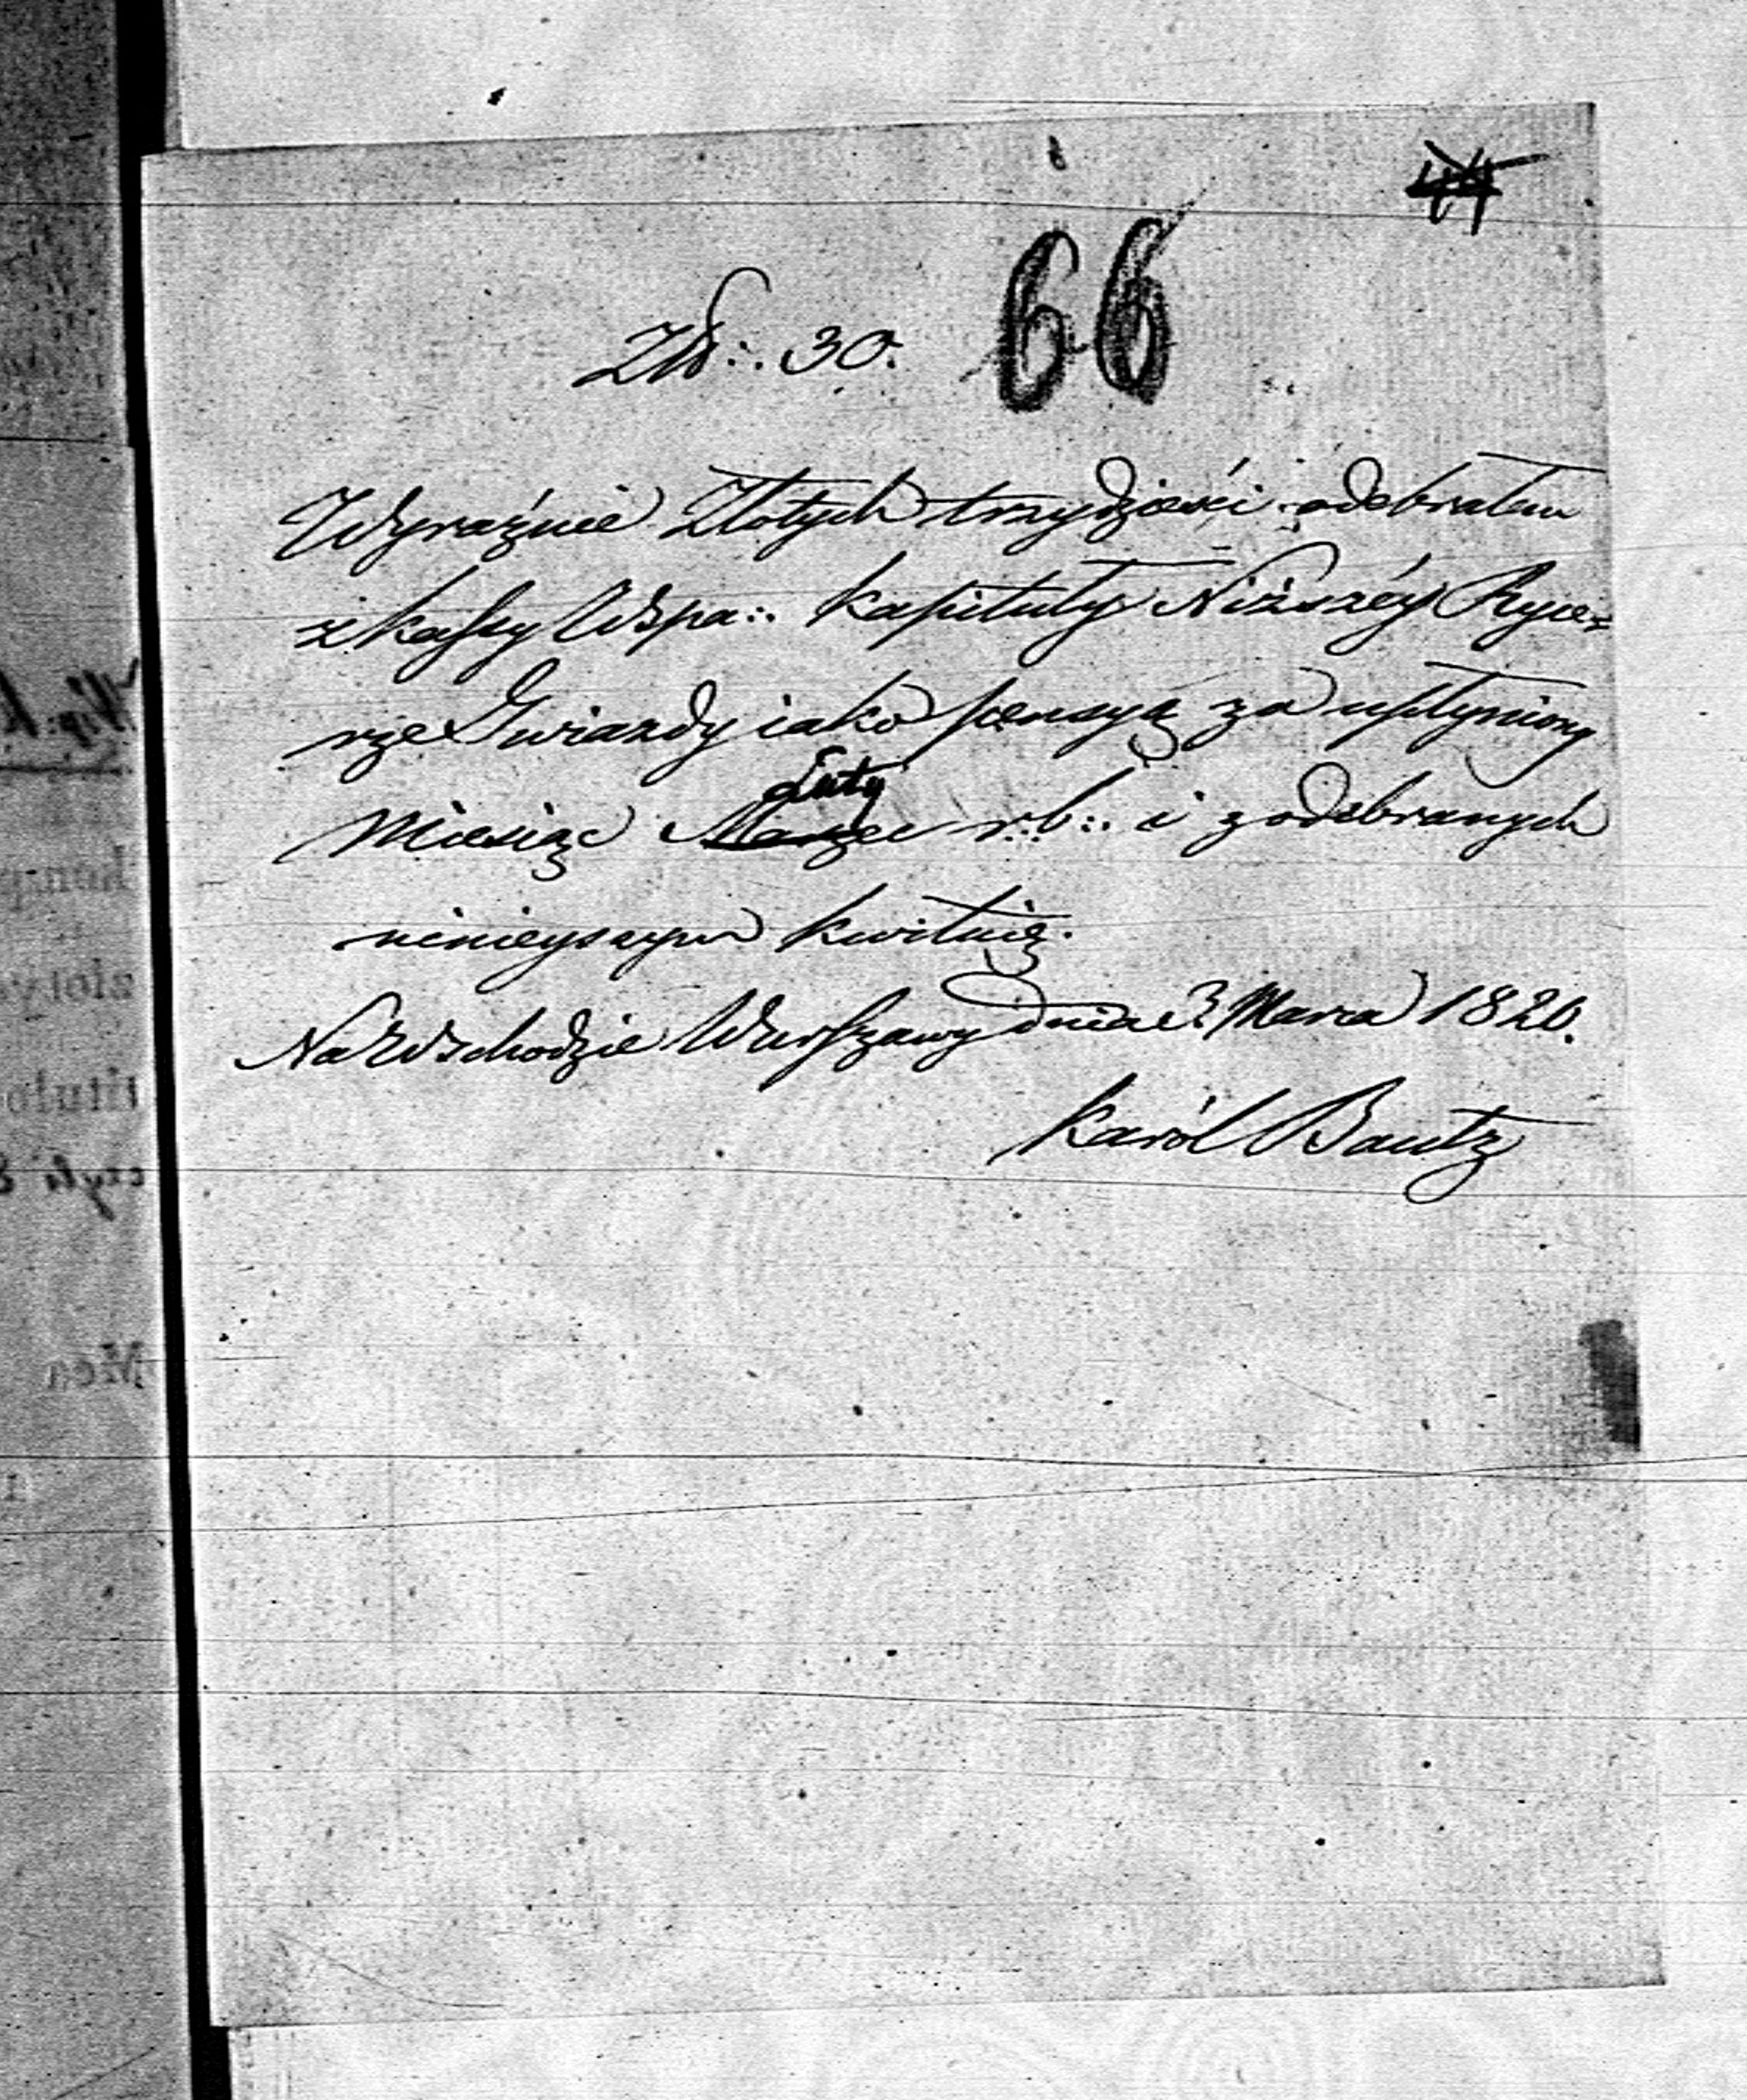 44
66
Zł:. 30.
Wyraźnie Złotych trzydzieści odebrałem
z kassy Wspa:. Kapituły Niższéy Ryce=
rze Gwiazdy iako pensyą za upłyniony
Miesiąc Marzec Luty r:b:. i z odebranych
ninieyszym kwituię.
Na Wschodzie Warszawy dnia 3 Marca 1820.
Karól Bautz